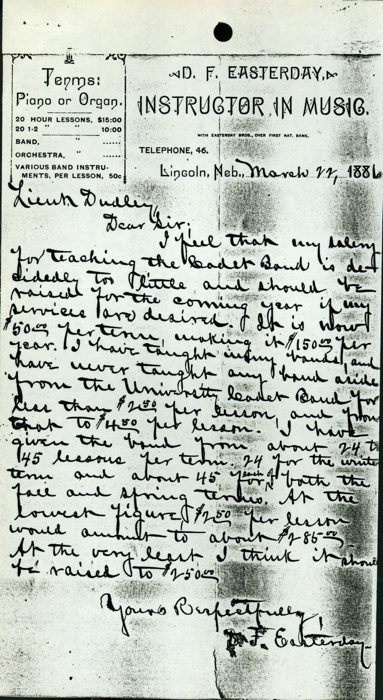 Terms:
Piano or Organ.
20 HOUR LESSONS, $15:00
20 1-2 " " 10:00
BAND, ......
ORCHESTRA, ......
VARIOUS BAND INSTRU-
MENTS, PER LESSON, 50c
D. F. EASTERDAY,
INSTRUCTOR IN MUSIC.
WITH EASTERDAY BROS., OVER FIRST NAT. BANK.
TELEPHONE, 46.
Lincoln, Neb., March 22, 1886
Lieut. Dudley,
Dear Sir;
I feel that my salary
for teaching the Cadet Band is de-
cidedly to little and should be
raised for the coming year if my
services are desired. It is now
$50.00 per term, making it $150.00 per
year. I have taught many bands, and
have never taught any band aside
from the University Cadet Band for
less than $2.50 per lesson, and from
that to $4.50 per lesson. I have
given the band from about 24 to
45 lessons per term 24 for the winter
term and about 45 each for both the
fall and spring terms. At the
lowest figure $2.50 per lesson
would amount to about $285.00
At the very least I think it should
be raised to $250.00
Yours Respectfully,
D. F. Easterday.